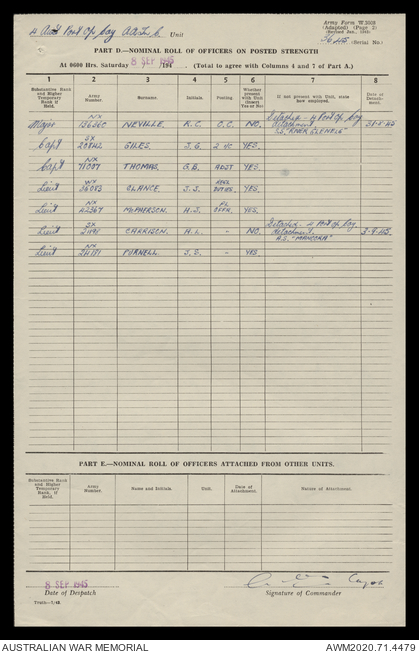 4 Aust Port Op Coy AASC Unit
Army Form W.3008
(Adapted) (Page 2)
(Revised Jan., 1945)
36/45 (Serial No.)
PART D.—NOMINAL ROLL OF OFFICERS ON POSTED STRENGTH
At 0600 Hrs. Saturday 8 SEP 1945 /194 . (Total to agree with Columns 4 and 7 of Part A.)
1 2 3 4 5 6 7 8
Substantive Rank and Higher Temporary Rank if Held. Army Number. Surname. Initials. Posting Whether present with Unit (Insert Yes or No) If not present with Unit, state how employed. Date of Detachment.
Major NEVILLE. R.C. O.C. NO. Detached - 4 Port Op Coy detachment 31-8-45
Capt SX GILES. J.G. 2 I/C YES.
Capt NX THOMAS. G.B. ADJT YES.
Lieut CLANCE. J.J. YES.
Lieut NX McPHERSON. H.J. YES.
Lieut GARRISON. H.L. - NO. Detached - 4 Port Op Coy detachment. "MANOORA" 3-9-45
Lieut NX PURNELL. J.S. - YES
PART E.—NOMINAL ROLL OF OFFICERS ATTACHED FROM OTHER UNITS.
Substantive Rank and Higher Temporary Rank, if Held. Army Number. Name and Initials. Unit. Date of Attachment. Nature of Attachment.
8 SEP 1945
Date of Despatch
Capt
Signature of Commander
AUSTRALIAN WAR MEMORIAL
AWM2020.71.4479